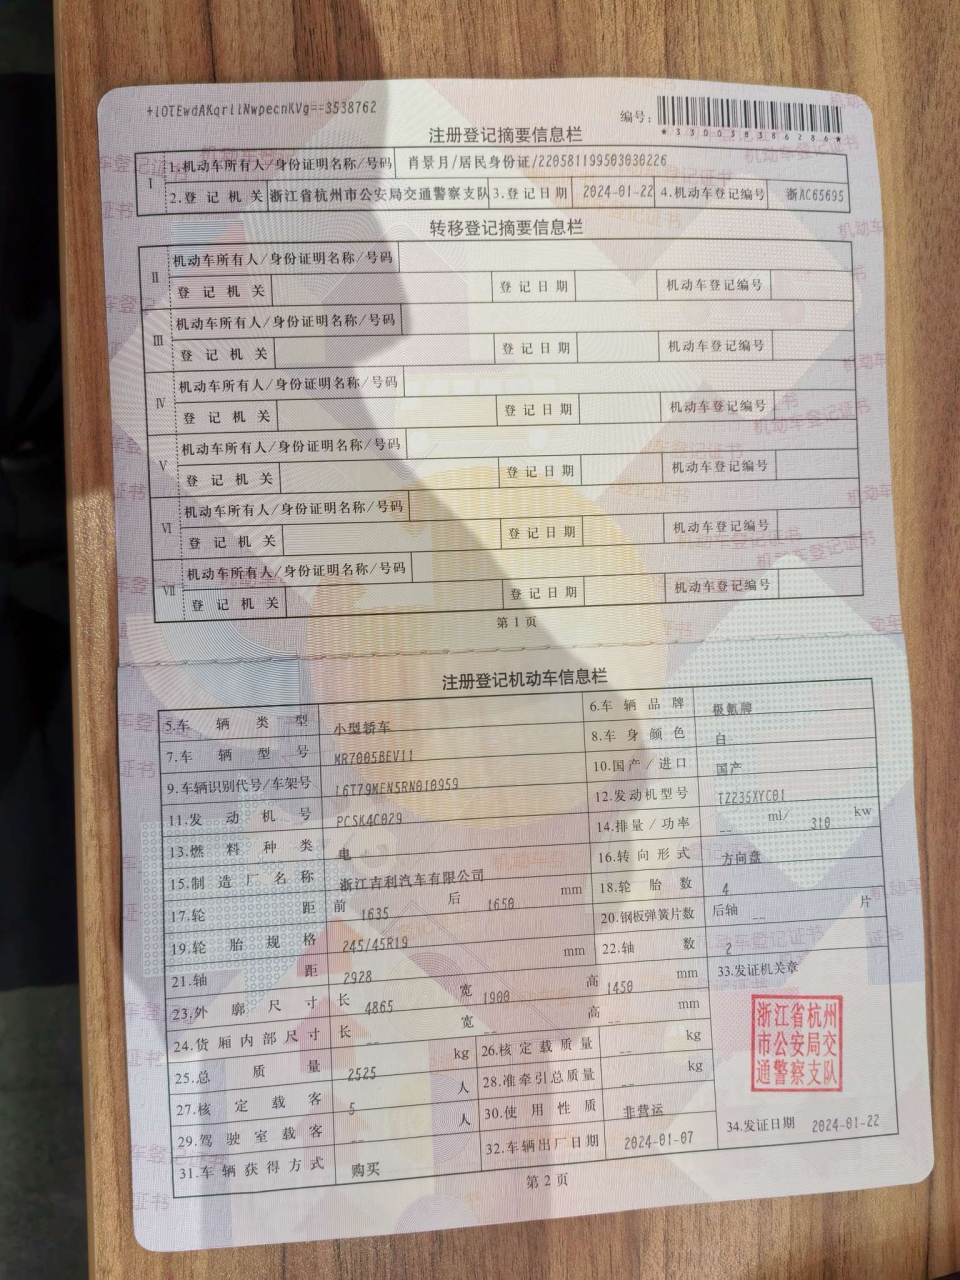 +iOTEwdAKqrliNwpecnKVg==3538762
编号:
*330038386286*
注册登记摘要信息栏
I
1.机动车所有人/身份证明名称/号码 肖景月/居民身份证/220581199503030226
2.登记机关 浙江省杭州市公安局交通警察支队 3.登记日期 2024-01-22 4.机动车登记编号 浙AC65695
转移登记摘要信息栏
II
机动车所有人/身份证明名称/号码
登记机关 登记日期 机动车登记编号
III
机动车所有人/身份证明名称/号码
登记机关 登记日期 机动车登记编号
IV
机动车所有人/身份证明名称/号码
登记机关 登记日期 机动车登记编号
V
机动车所有人/身份证明名称/号码
登记机关 登记日期 机动车登记编号
VI
机动车所有人/身份证明名称/号码
登记机关 登记日期 机动车登记编号
VII
机动车所有人/身份证明名称/号码
登记机关 登记日期 机动车登记编号
第1页
注册登记机动车信息栏
5.车辆类型 小型轿车 6.车辆品牌 极氪牌
7.车辆型号 MR7005BEV11 8.车身颜色 白
9.车辆识别代号/车架号 L6T79MEN5RN010959 10.国产/进口 国产
11.发动机号 PCSK4C029 12.发动机型号 TZ235XYC01
13.燃料种类 电 14.排量/功率 -- ml/ 310 kw
15.制造厂名称 浙江吉利汽车有限公司 16.转向形式 方向盘
17.轮距 前 1635 后 1650 mm 18.轮胎数 4
19.轮胎规格 245/45R19 20.钢板弹簧片数 后轴 -- 片
21.轴距 2928 mm 22.轴数 2
23.外廓尺寸 长 4865 宽 1900 高 1450 mm 33.发证机关章
24.货厢内部尺寸 长 -- 宽 -- 高 -- mm
25.总质量 2525 kg 26.核定载质量 -- kg
27.核定载客 5 人 28.准牵引总质量 -- kg
29.驾驶室载客 -- 人 30.使用性质 非营运
31.车辆获得方式 购买 32.车辆出厂日期 2024-01-07 34.发证日期 2024-01-22
浙江省杭州
市公安局交
通警察支队
第2页